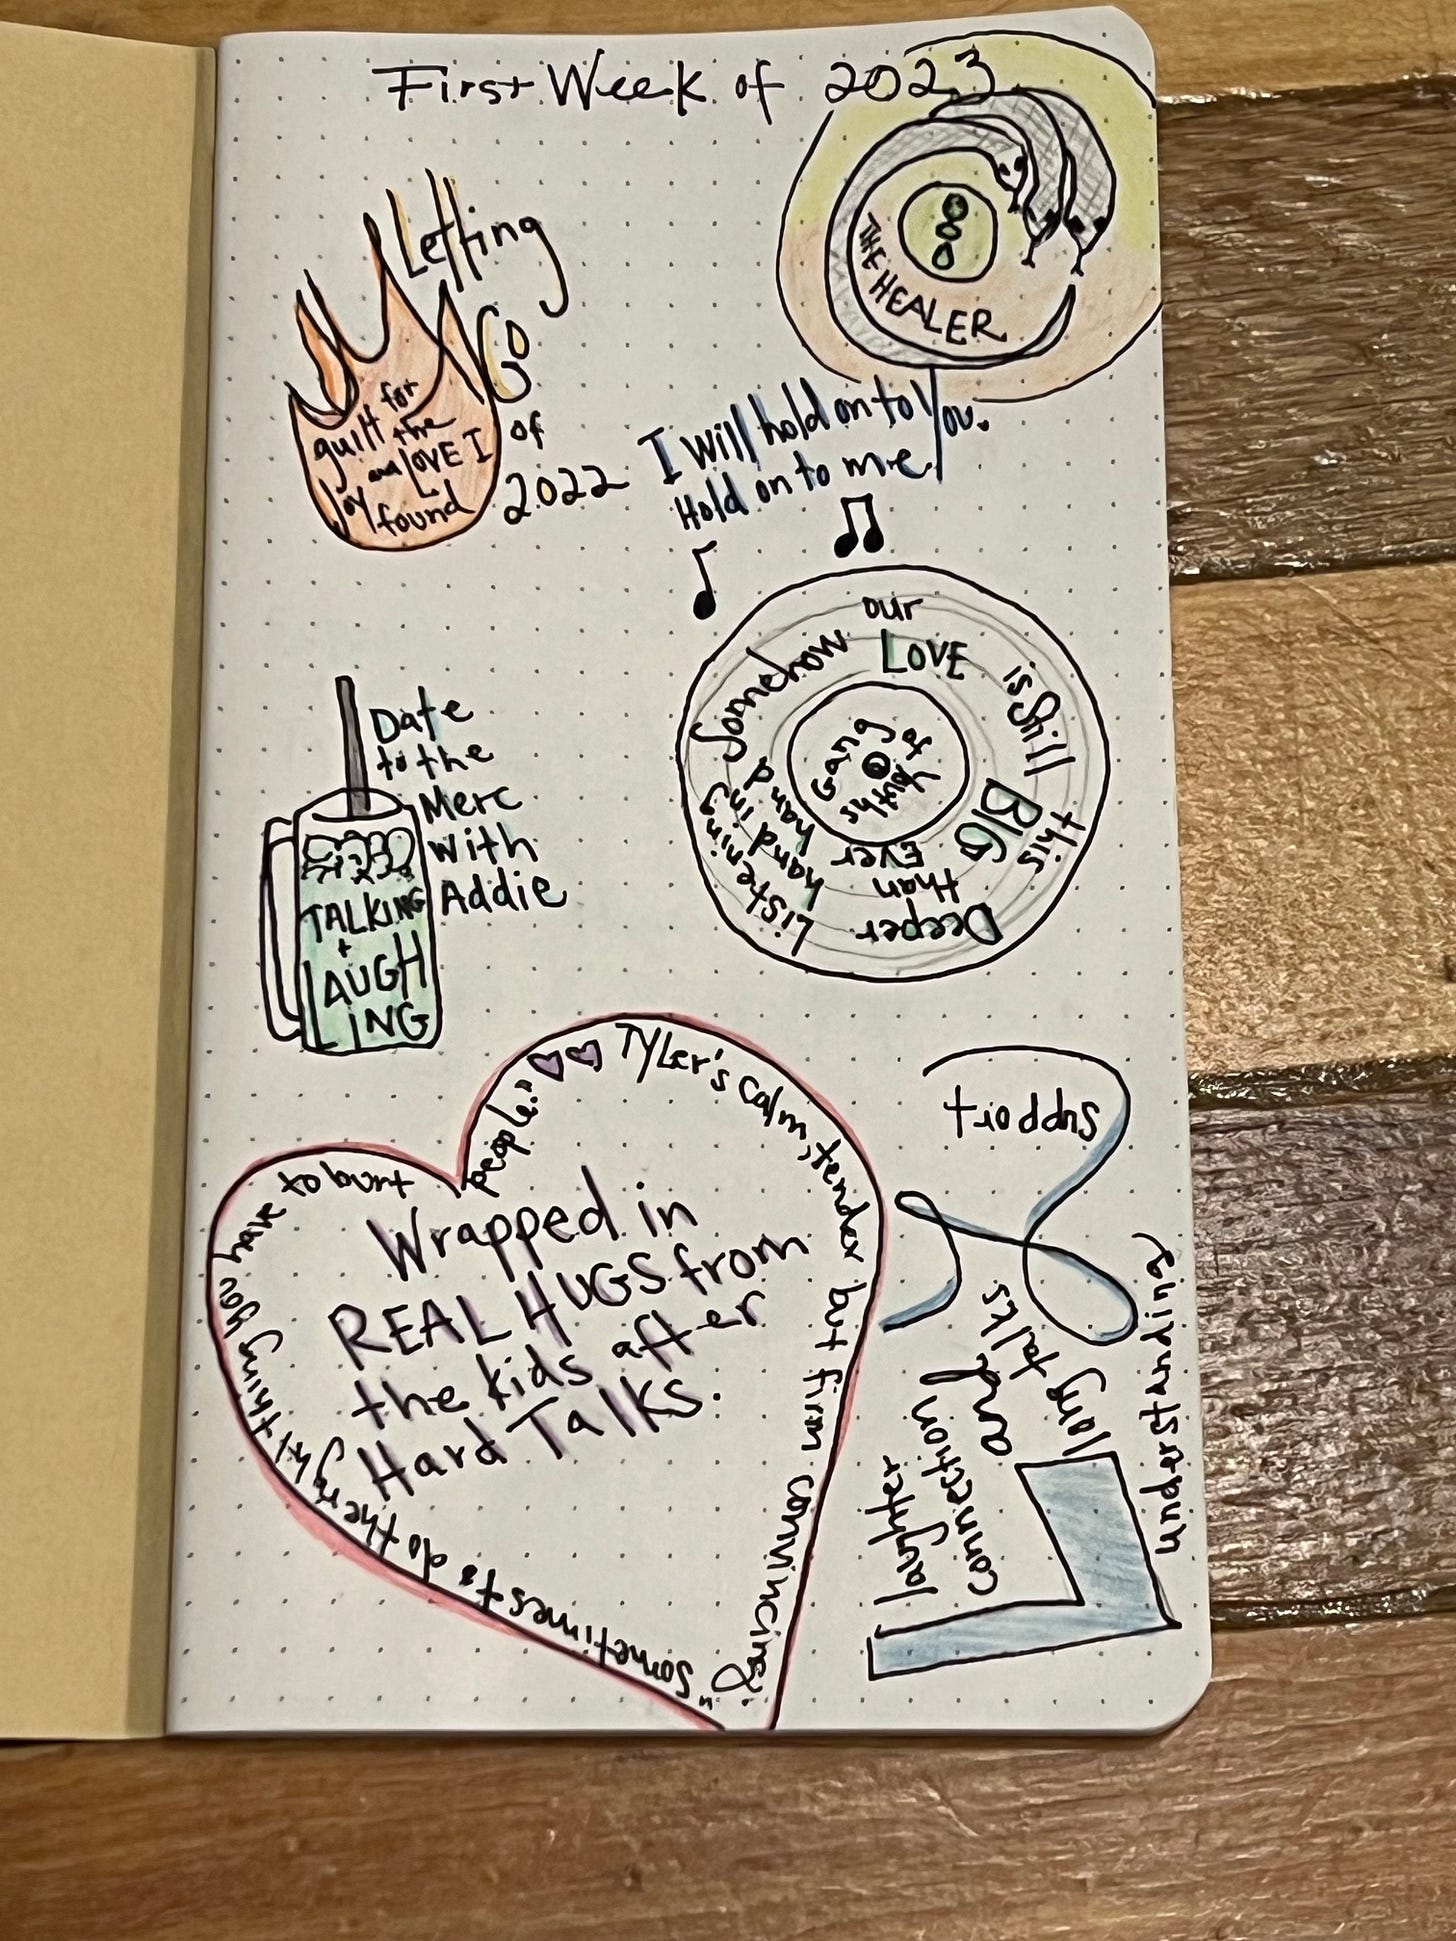 First Week of 2023
Letting
GO
of
2022
guilt for
the
and LOVE I
Joy found
THE HEALER
I will hold on to you.
Hold on to me
Somehow our LOVE is Still this BIG
Listening hand in hand
Deeper than EVER
Gang of Youths
Date
to the
Merc
with
Addie
TALKING
+
LAUGH
ING
Tyler's calm, tender but firm convincing:
"sometimes to do the right thing you have to hurt people." 
Wrapped in
REAL HUGS from
the kids after
Hard Talks.
support
laughter
connection
and
long talks
understanding